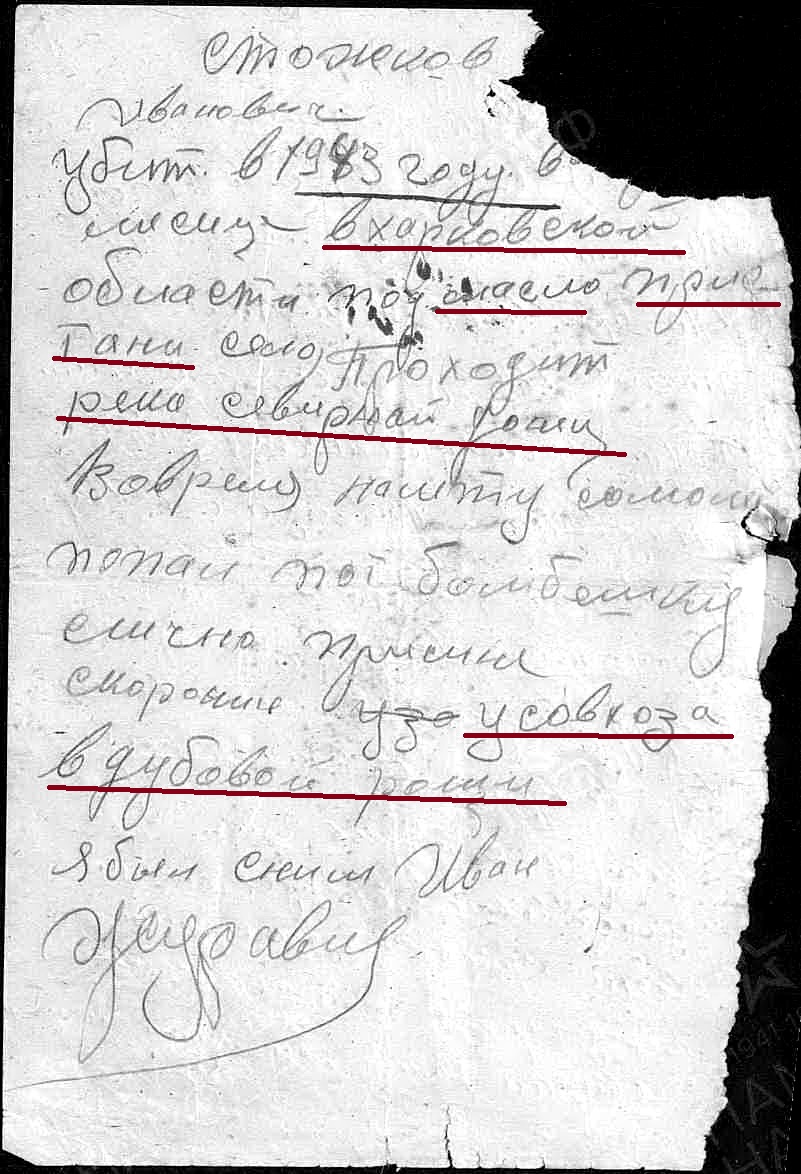 Стожков
Иванович
убит. в 1943 году. в
месяце в харковской
области под масло прис
тани село Проходит
река северной
Вовремя налету самоли
попал пот бомбешку
слично
схоронин у совхоза
в дубовой рощи
я был сним Иван
Журавлев